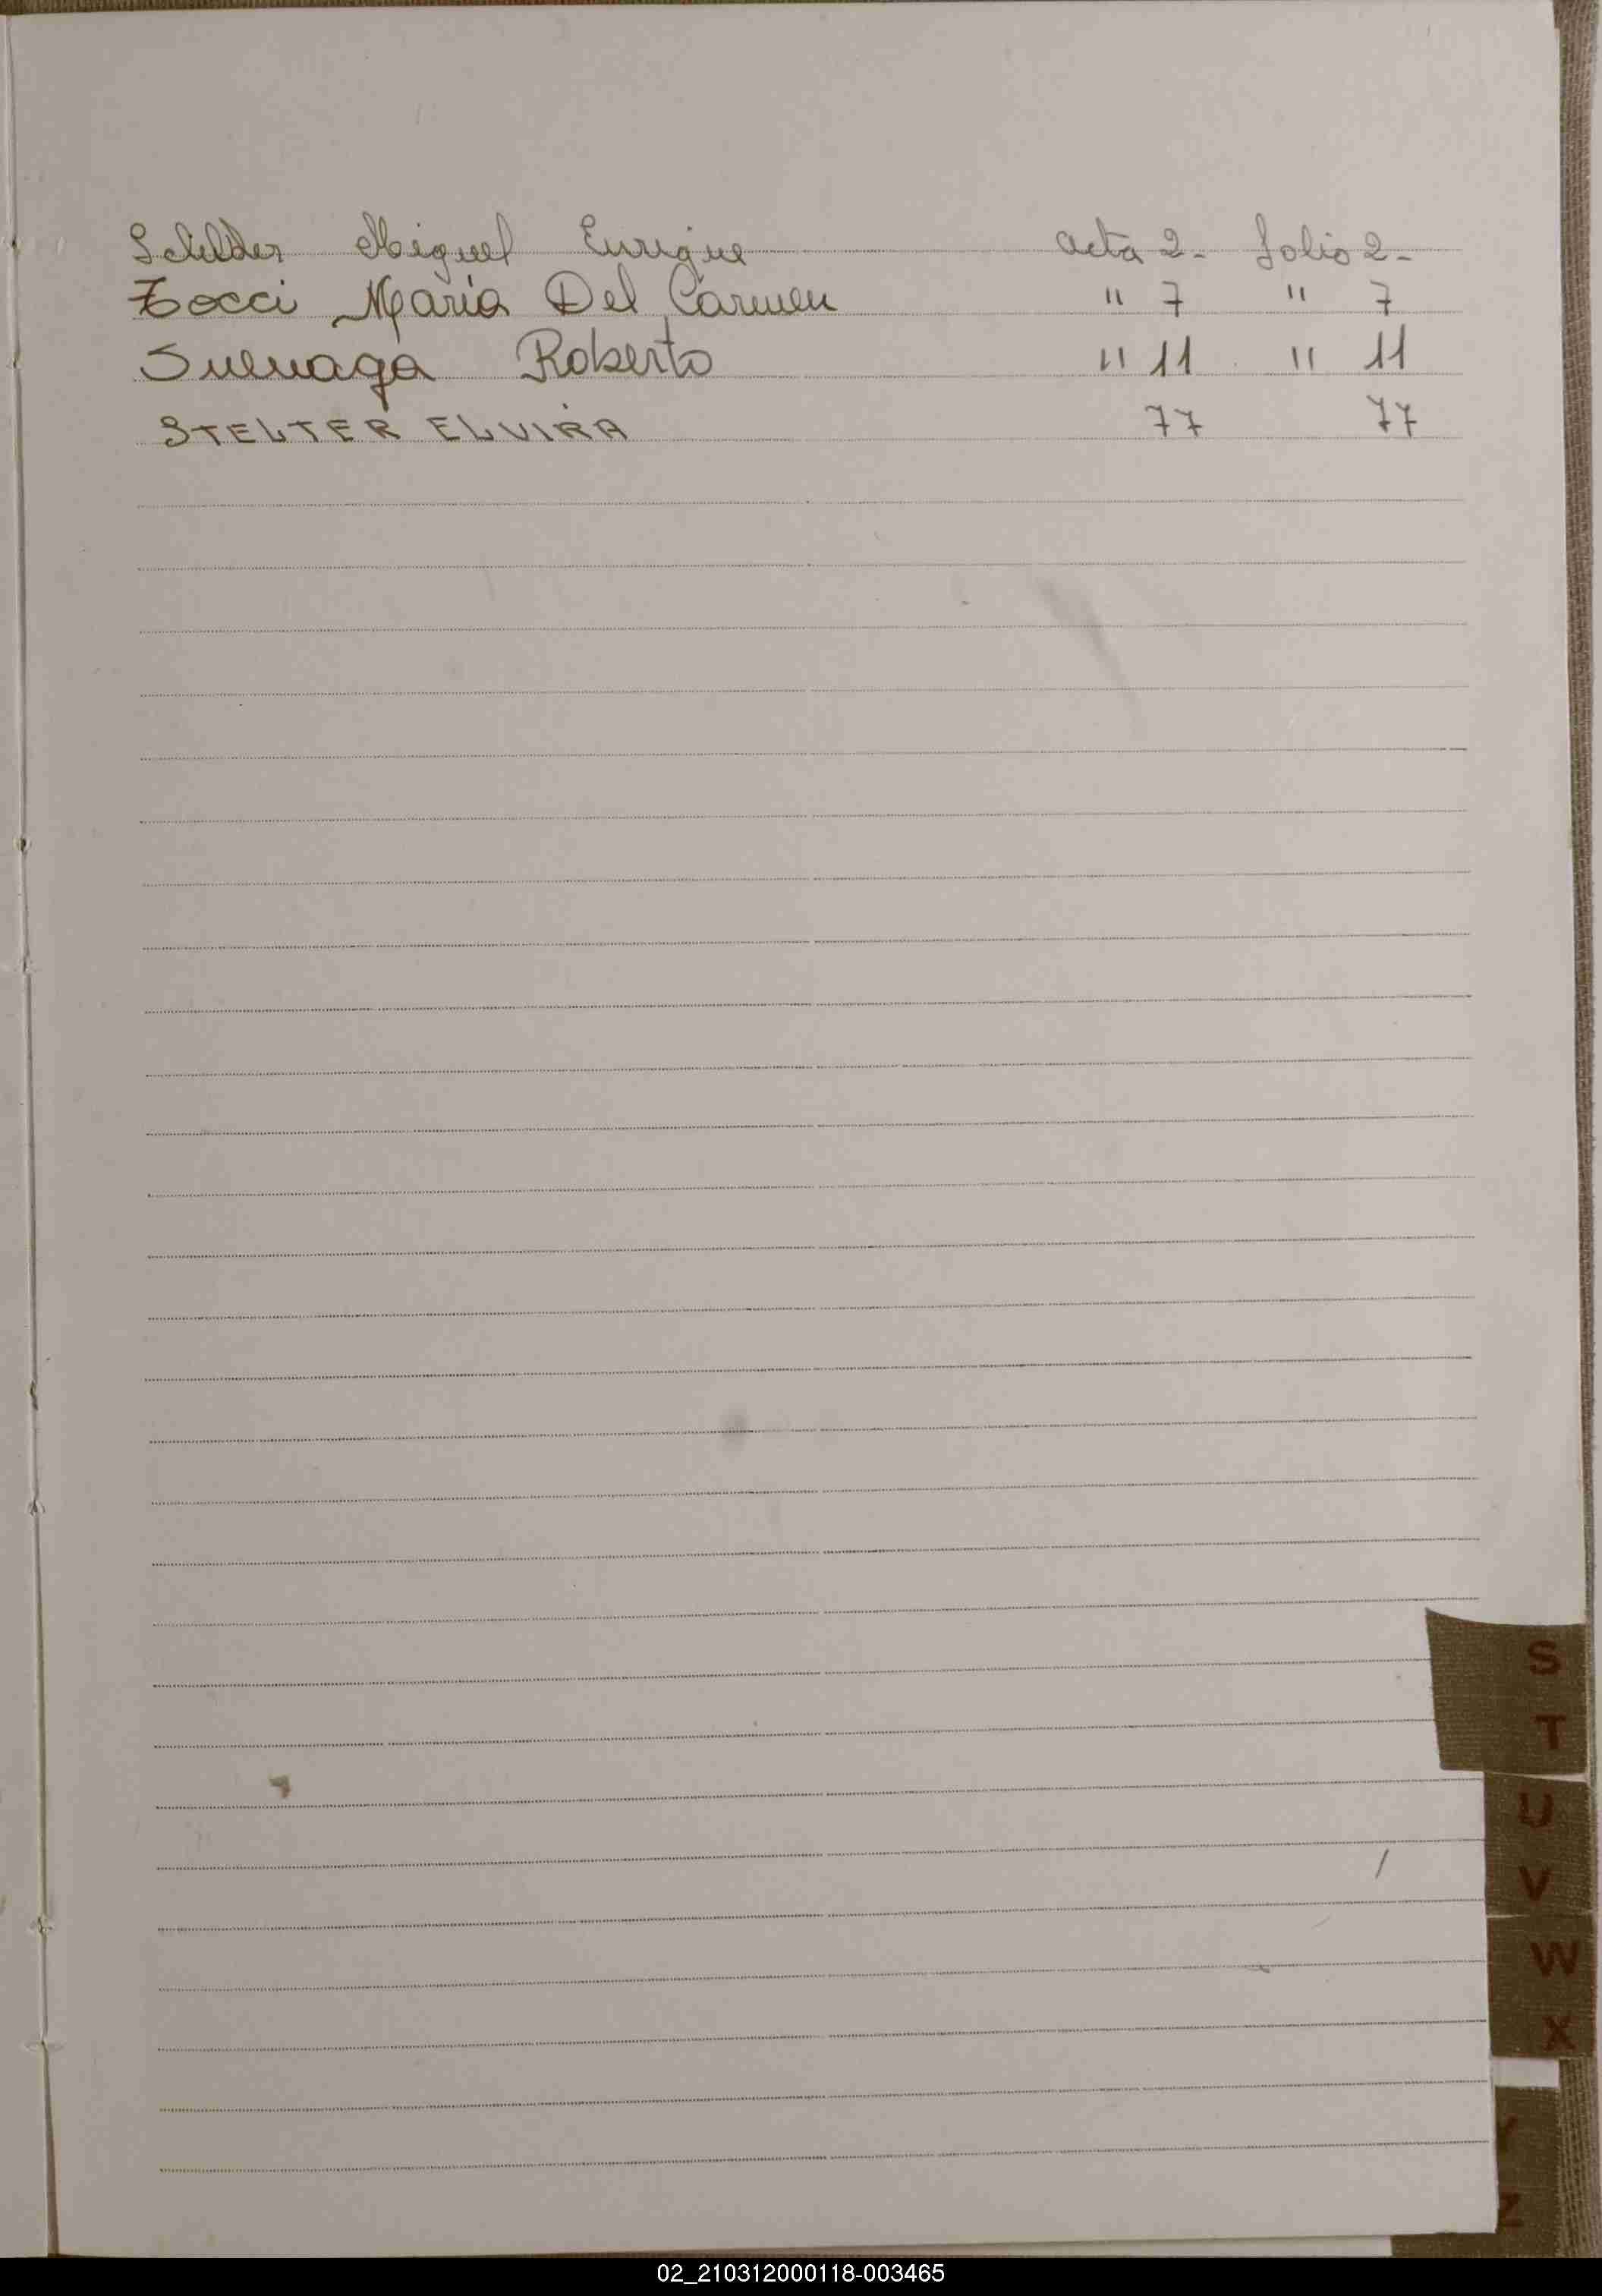 Schilder Miguel Enrique acta 2- folio 2-
Tocci María Del Carmen " 7 " 7
Sueuaga Roberto " 11 " 11
STELTER ELVIRA 77 77
S
T
U
V
W
X
Y
Z
02_210312000118-003465